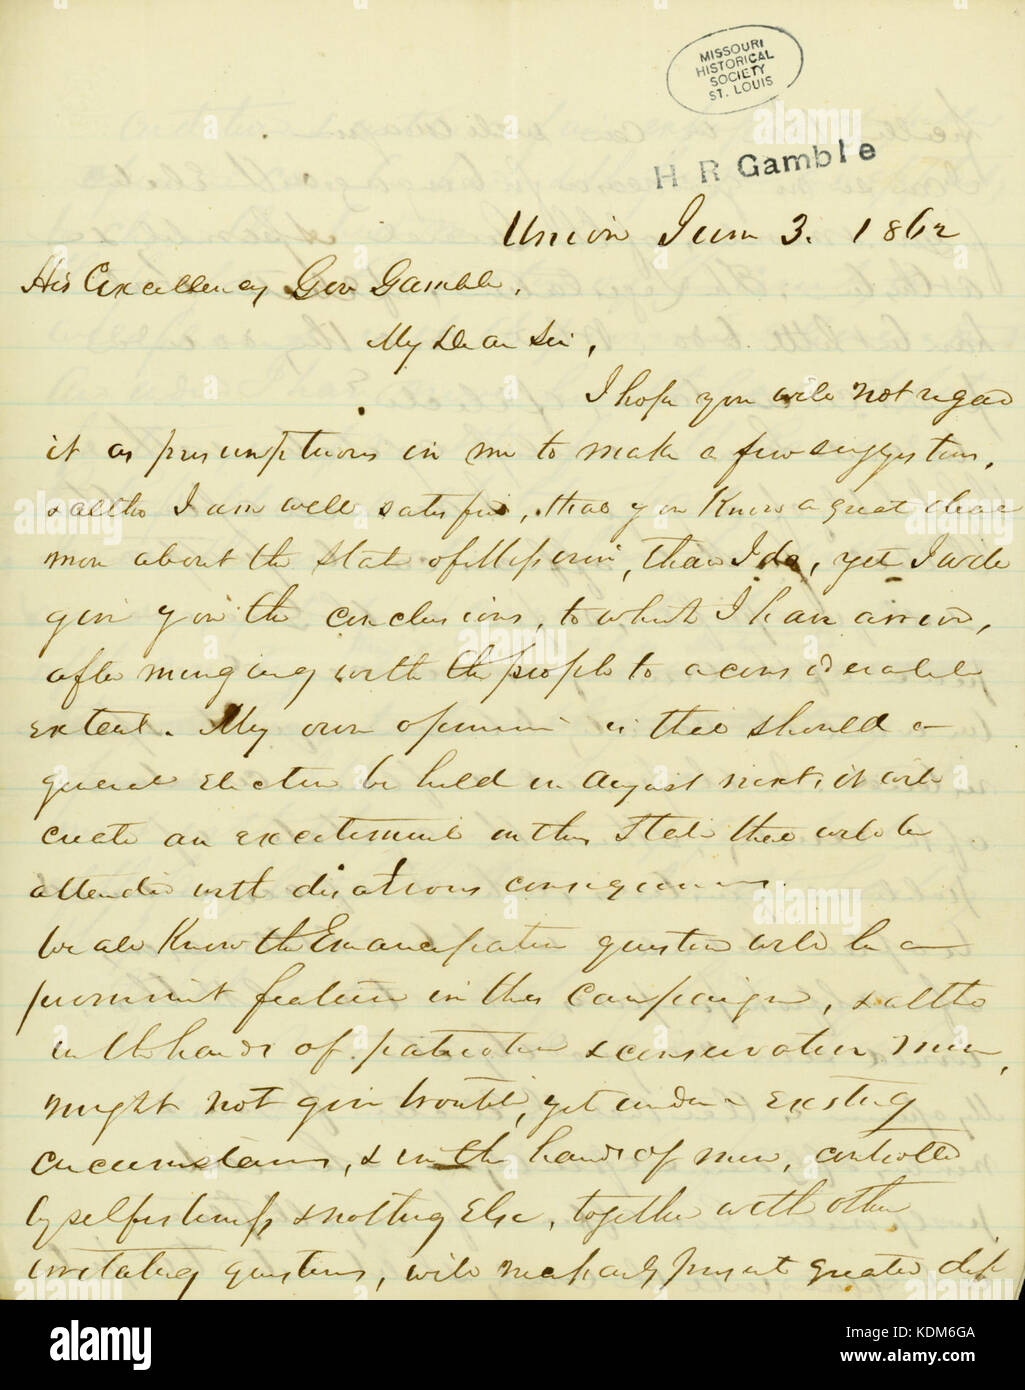 MISSOURI
HISTORICAL
SOCIETY
ST. LOUIS
H R Gamble
Union June 3. 1862
His Excellency Gov Gamble,
My Dear Sir,
I hope you will not regard
it as presumptuous in me to make a few suggestions,
& altho I am well satisfied, that you know a great deal
more about the State of Missouri, than I do, yet I will
give you the conclusions, to which I have arrived,
after mingling with the people to a considerable
extent. My own opinion is that should a
general Election be held in August next, it will
create an excitement in this State that will be
attended with disastrous consequences.
We all Know the Emancipation question will be a
prominent feature in this Campaign, & altho
in the hands of patriotic & conservative men,
might not give trouble, yet under existing
circumstances, & in the hands of men, controlled
by selfishness & nothing Else, together with other
irritating questions, will necessarily present greater
alamy
Image ID: KDM6GA
www.alamy.com